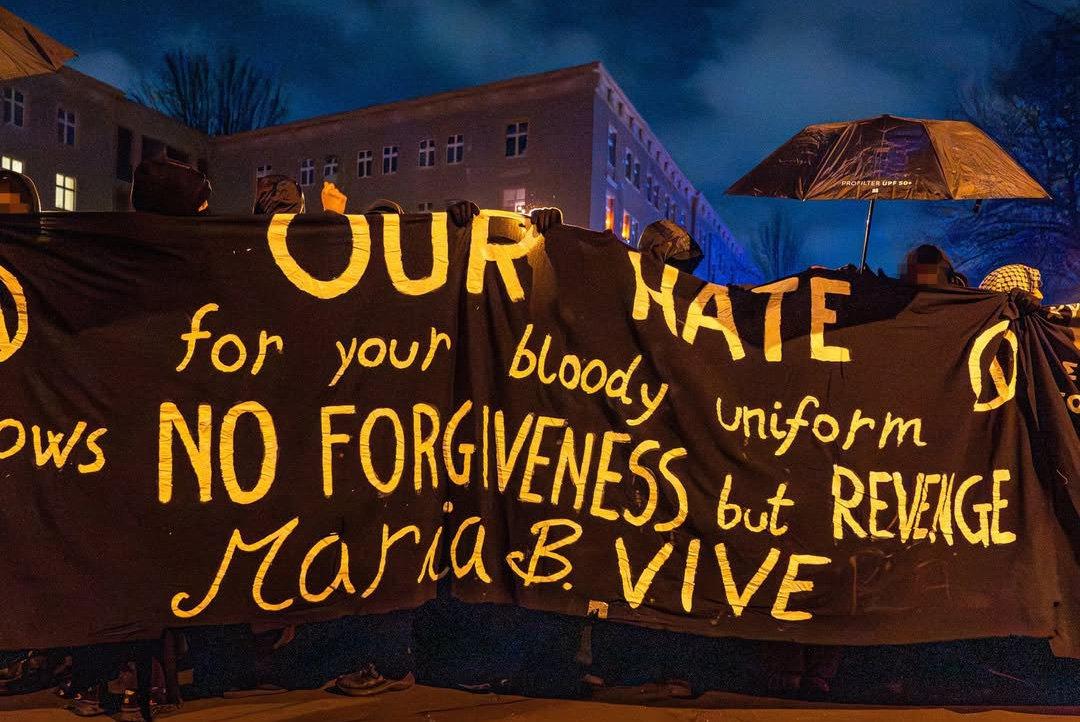 PROFILTER UPF 50+
OUR HATE
for your bloody uniform
ows NO FORGIVENESS but REVENGE
Maria B. VIVE